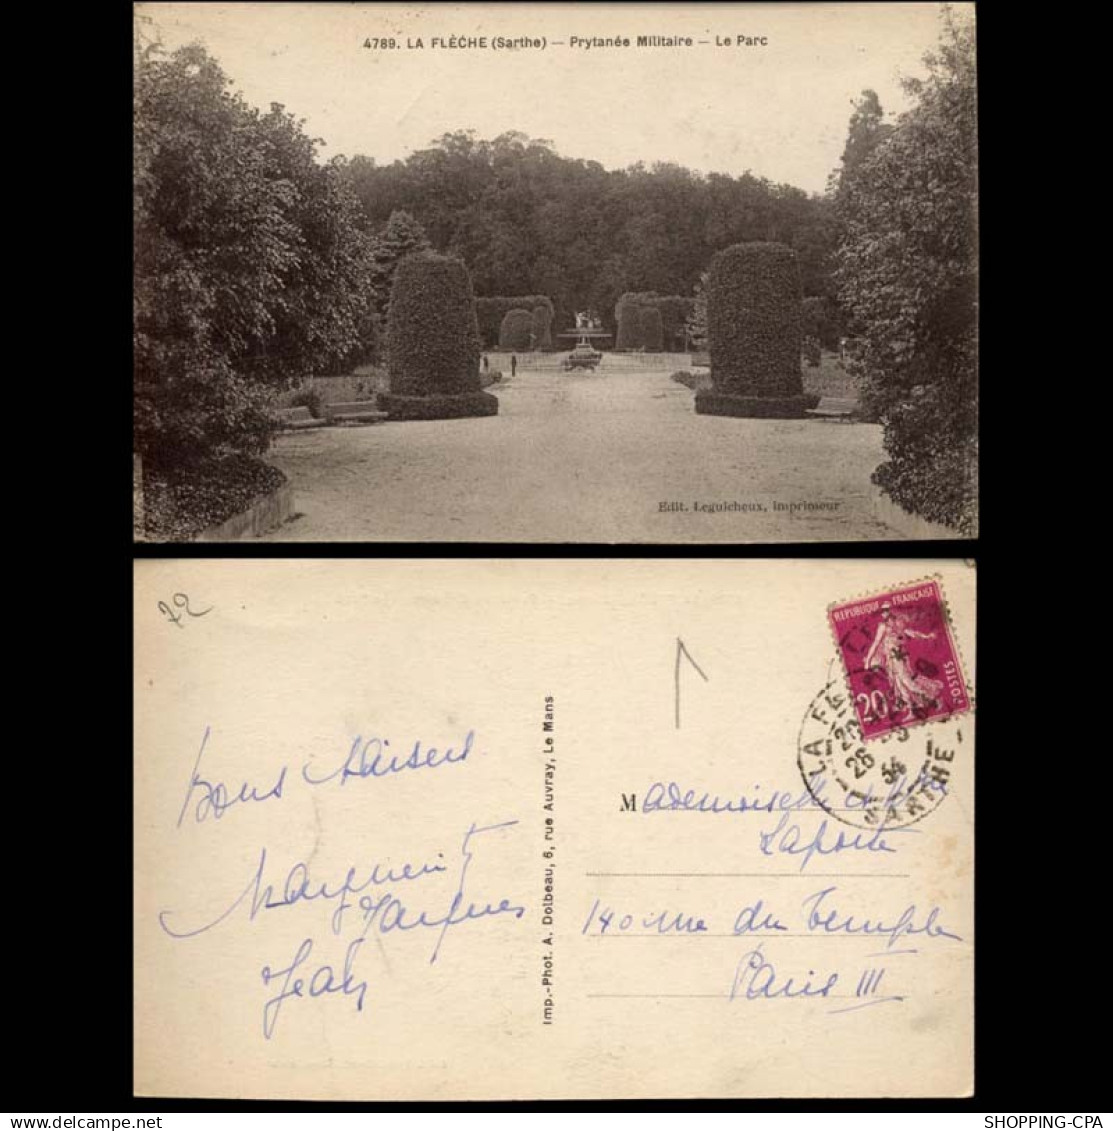 4789. LA FLÈCHE (Sarthe) — Prytanée Militaire — Le Parc
Edit. Leguicheux, imprimeur
72
Bons baisers
Marguerite
Jacques
Jean
Imp.-Phot. A. Dolbeau, 6, rue Auvray, Le Mans
REPUBLIQUE FRANÇAISE
POSTES
20
LA FL
SARTHE
26
34
Mademoiselle
Laporte
140 rue du Temple
Paris III
SHOPPING-CPA